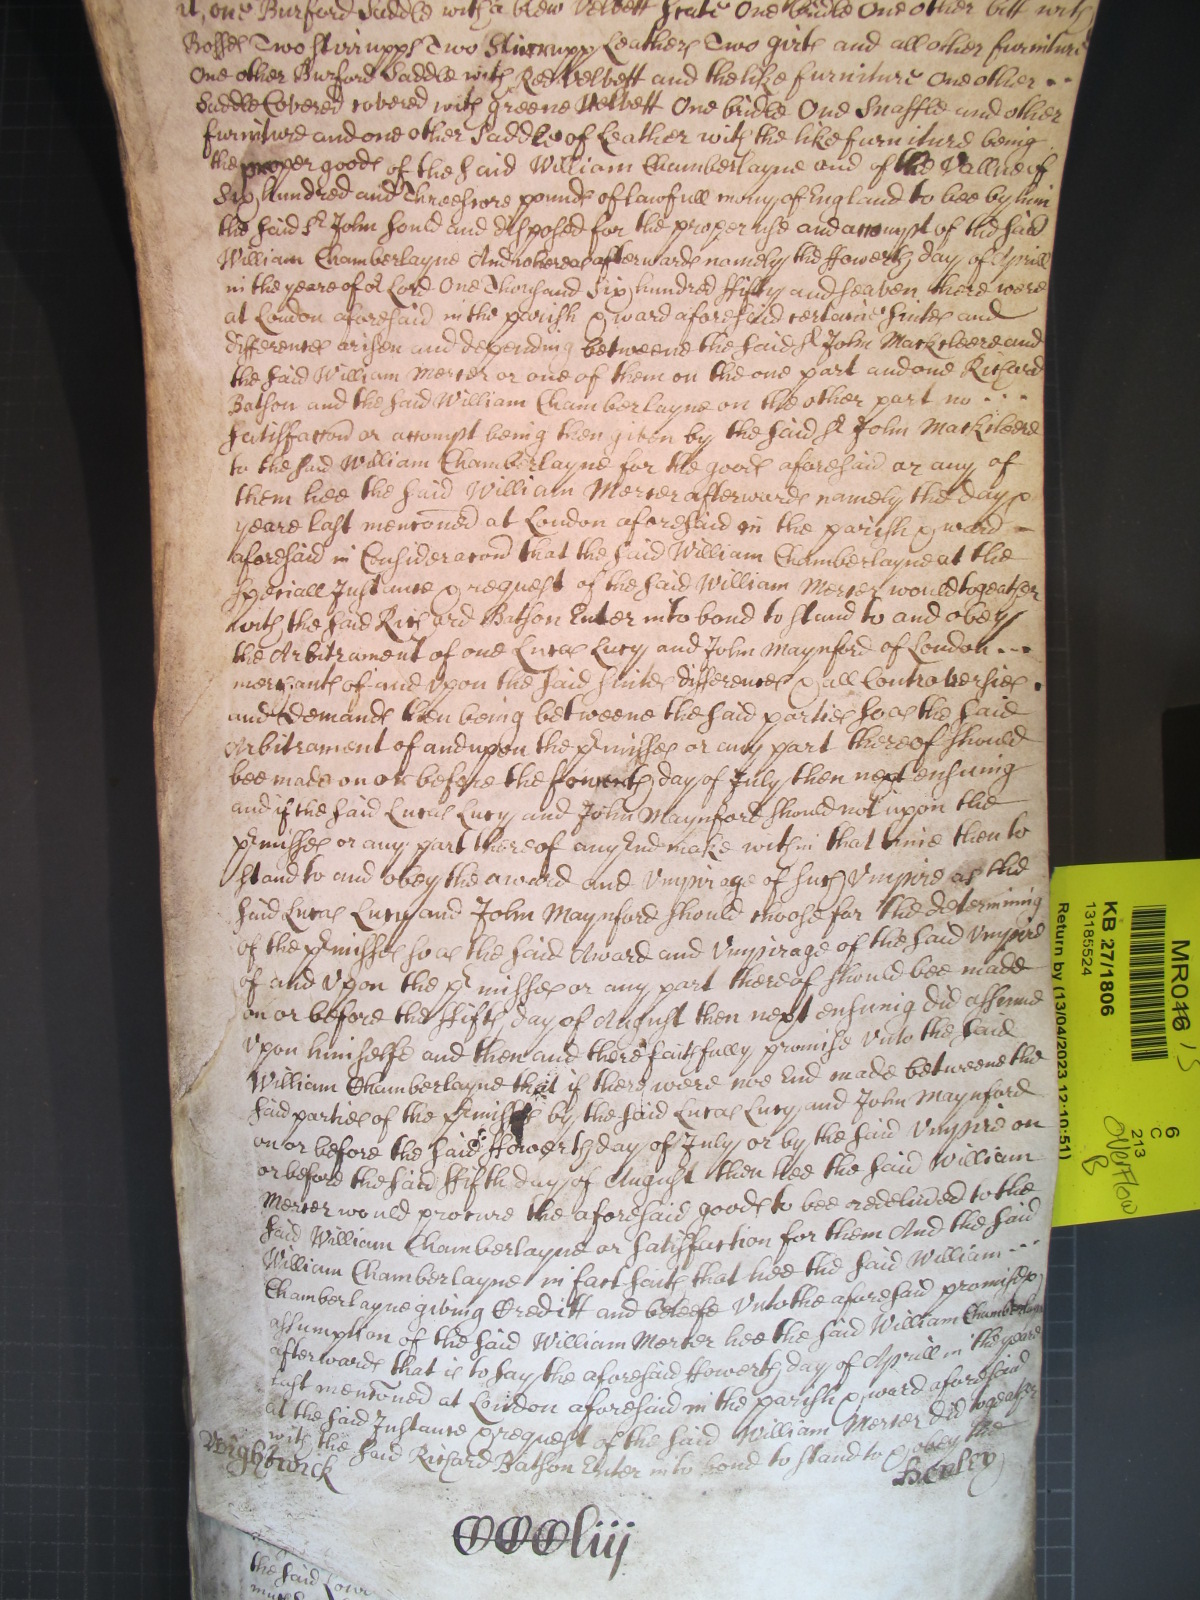 it, one Burford Saddle with a blew velvett Seate One bridle One other bitt with
Bosses Two stirrupps Two Stirrupp Leathers Two girts and all other furniture
One other Burford Saddle with Red velvett and the like furniture One other
Saddle Covered covered with greene Velvett One bridle One Snaffle and other
furniture and one other Saddle of Leather with the like furniture being
the proper goods of the said William Chamberlayne and of the Vallue of
Six hundred and Threescore pounds of lawfull mony of England to bee by him
the said Sr John sould and disposed for the proper use and accompt of the said
William Chamberlayne And whereas afterwards namely the ffowerth day of Aprill
in the yeare of or Lord One Thousand Six hundred ffifty and seaven there were
at London aforesaid in the parish & ward aforesaid certaine suites and
differences arisen and depending betweene the said Sr John Mackcleere and
the said William Mercer or one of them on the one part and one Richard
Batson and the said William Chamberlayne on the other part no
satisfaccon or accompt being then given by the said Sr John Mackcleere
to the said William Chamberlayne for the goods aforesaid or any of
them hee the said William Mercer afterwards namely the day &
yeare last menconed at London aforesaid in the parish & ward
aforesaid in Consideracon that the said William Chamberlayne at the
speciall Instance & request of the said William Mercer would togeather
with the said Richard Batson Enter into bond to stand to and obey
the Arbitrament of one Lucas Lucy and John Maynford of London
merchants of and Upon the said suites differences & all Controversies
and Demands then being betweene the said parties soe as the said
Arbitrament of and upon the pmisses or any part thereof should
bee made on or before the ffowerth day of July then next ensuing
and if the said Lucas Lucy and John Maynford should not upon the
pmisses or any part thereof any End make within that time then to
stand to and obey the award and Umpirage of such Umpire as the
said Lucas Lucy and John Maynford should choose for the determining
of the pmisses soe as the said Award and Umpirage of the said Umpire
of and Upon the pmisses or any part thereof should bee made
on or before the ffifth day of August then next ensuing did assume
Upon himselfe and then and there faithfully promise Unto the said
William Chamberlayne that if there were noe End made betweene the
said parties of the pmisses by the said Lucas Lucy and John Maynford
on or before the said ffowerth day of July or by the said Umpire on
or before the said ffifth day of August then hee the said William
Mercer would procure the aforesaid goods to bee redelivered to the
said William Chamberlayne or satisfaction for them And the said
William Chamberlayne in fact saith that hee the said William
Chamberlayne giving Creditt and beleefe Unto the aforesaid promise &
assumption of the said William Mercer hee the said William Chamberlayne
afterwards that is to say the aforesaid ffowerth day of Aprill in the yeare
last menconed at London aforesaid in the parish & ward aforesaid
at the said Instance & request of the said William Mercer did togeather
with the said Richard Batson Enter into bond to stand to & obey the
Wightwick
Henley
CCCCliij
the said
MR046
KB 27/1806
13185524
Return by (13/04/2023 12:10:51)
6
C
213
overflow
B